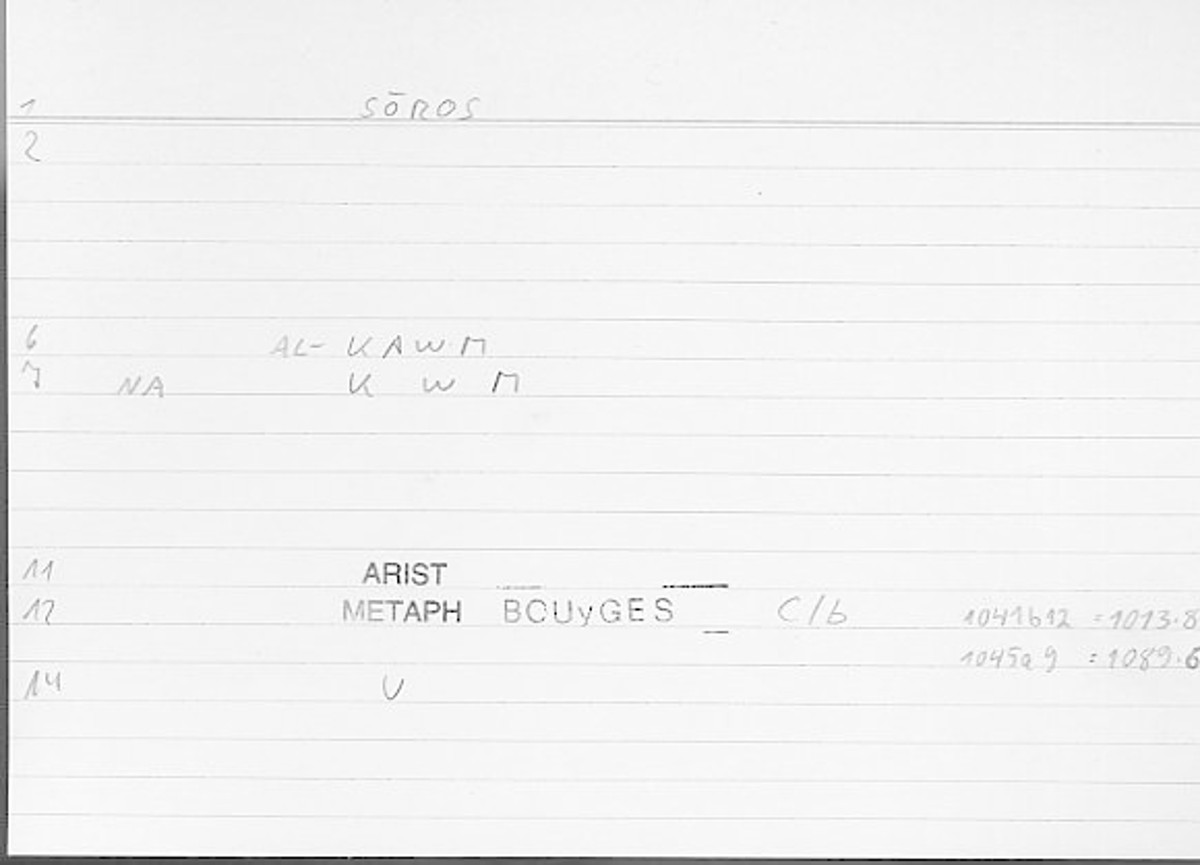 1 SŌROS
2
6 AL-KAWM
7 NA K W M
11 ARIST
12 METAPH BOUyGES C/b 1041b12 = 1013.8
1045a9 = 1089.6
14 U